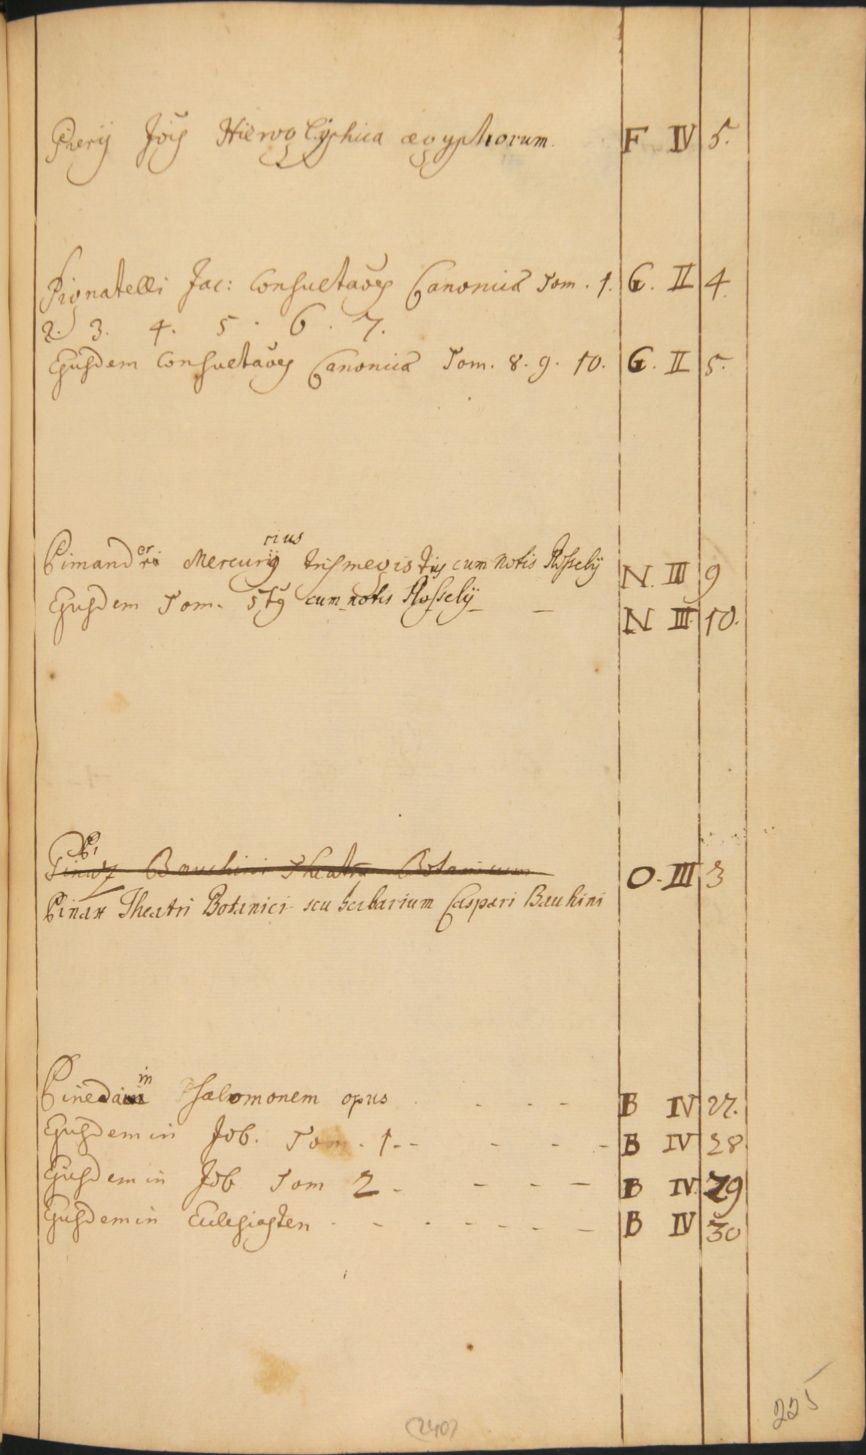 Pierij Jois Hieroglyphica ægyptiorum. F IV 5.
Pignatelli Jac: Consultaoes Canonicæ Tom. 1. G. II 4.
2. 3. 4. 5. 6. 7.
Ejusdem Consultaoes Canonicæ Tom. 8. 9. 10. G. II 5.
rius
Pimander Mercurij trismegistus cum notis Rosselij N. III 9
Ejusdem Tom. 5tg cum notis Rosselij N III 10.
Pi
Pinax Bauhini Theatrum Botanicum O. III 3
Pinax Theatri Botanici seu herbarium Caspari Bauhini
in
Pineda Psalomonem opus B IV 27.
Ejusdem in Job. Tom. 1 B IV 28.
Ejusdem in Job Tom 2 B IV. 29
Ejusdem in Eclesiasten B IV 30
(240)
225